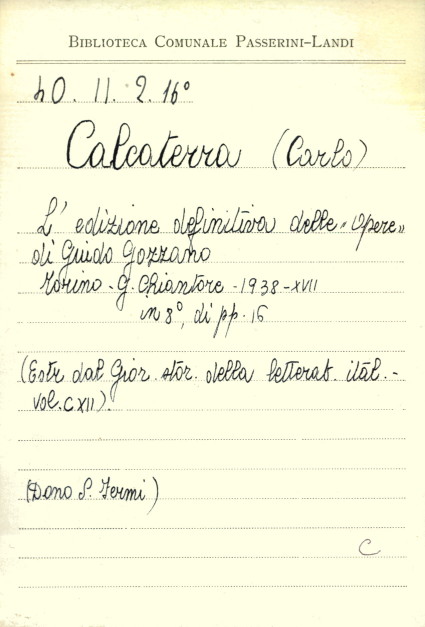 BIBLIOTECA COMUNALE PASSERINI-LANDI
40. 11. 2. 16°
Calcaterra (Carlo)
L' edizione definitiva delle "Opere"
di Guido Gozzano
Torino - G. Chiantore - 1938 - XVII
in 8°, di pp. 16
(Estr. dal Gior. stor. della letterat. ital. -
vol. CXII).
(Dono S. Fermi)
C